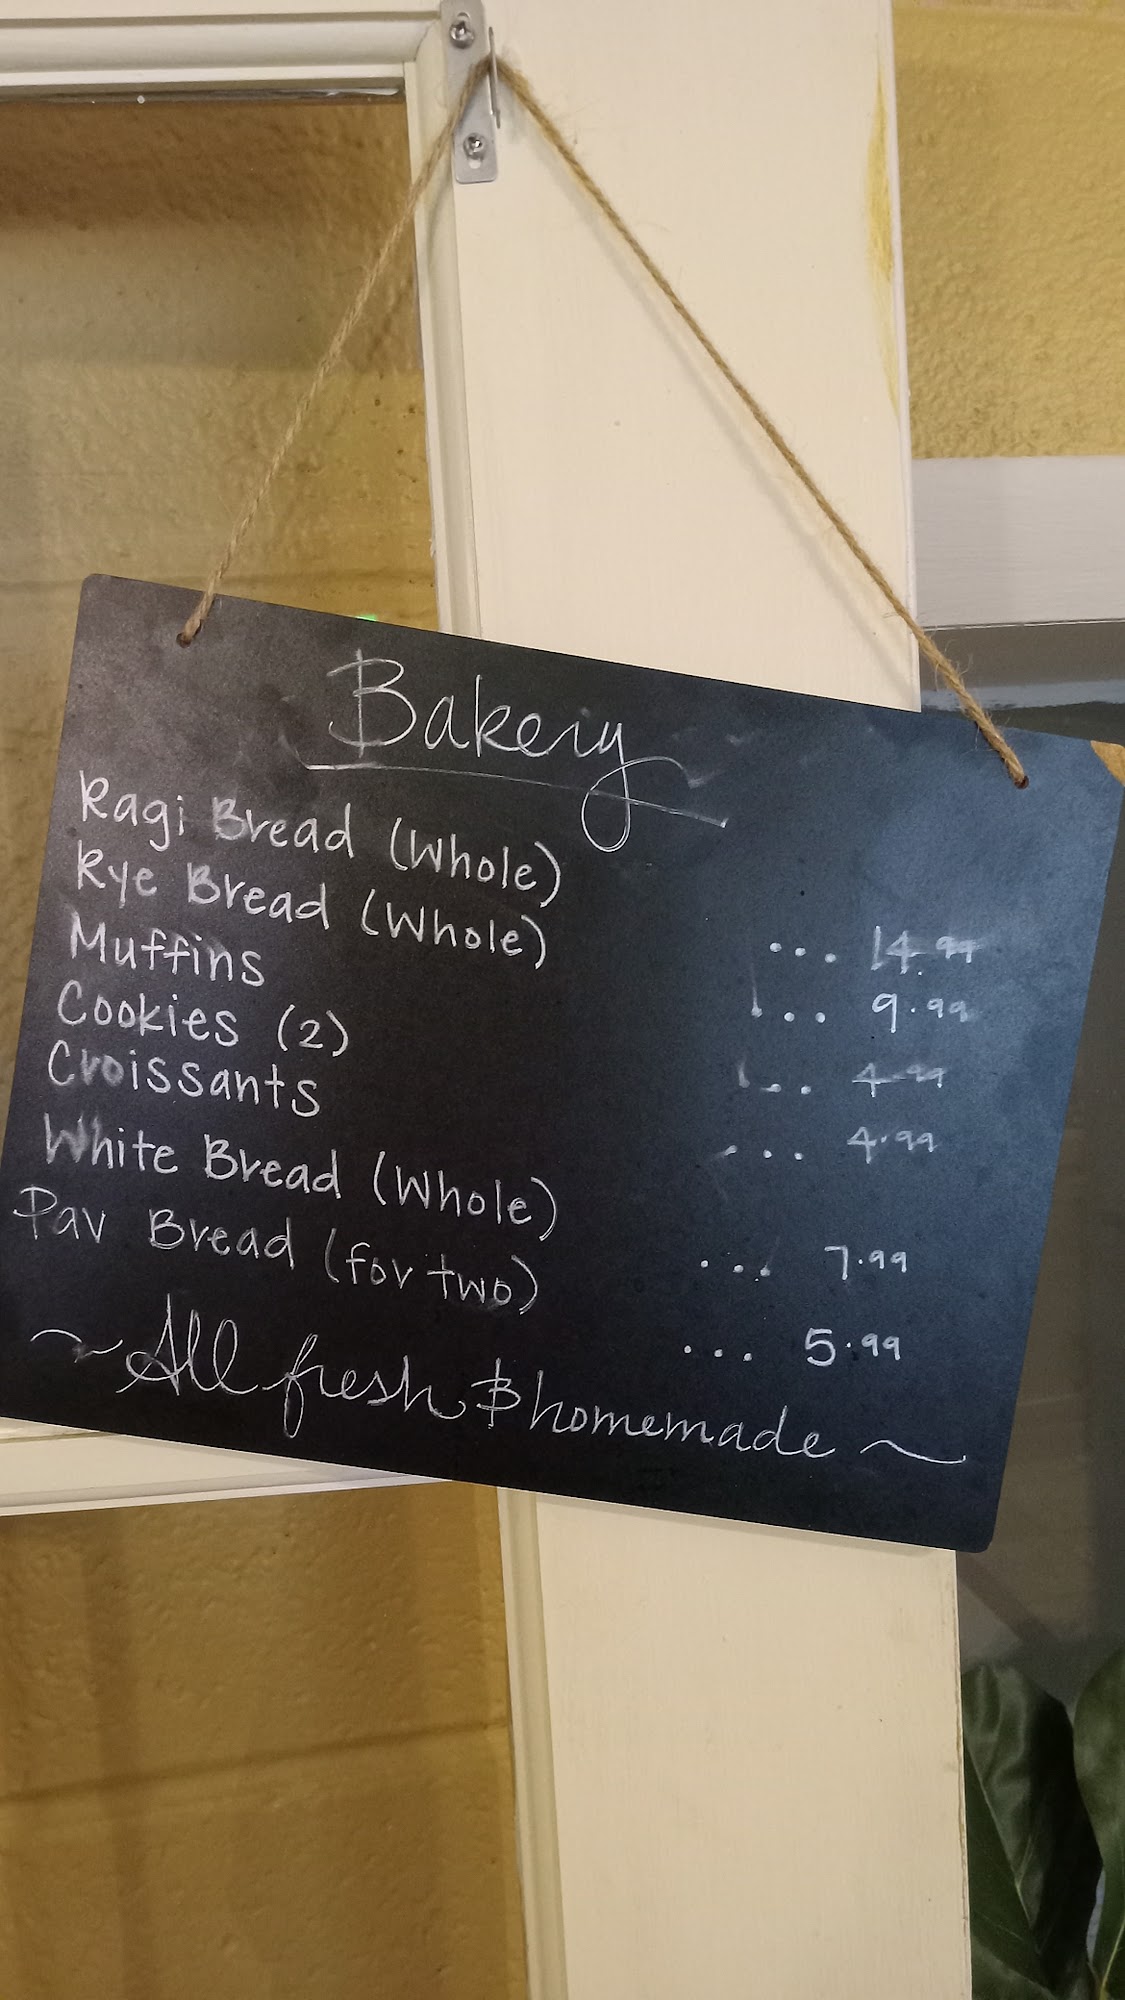 Bakery
Ragi Bread (Whole) ... 14.99
Rye Bread (Whole) ... 9.99
Muffins ... 4.99
Cookies (2) ... 4.99
Croissants
White Bread (Whole) ... 7.99
Pav Bread (for two) ... 5.99
~ All fresh & homemade ~